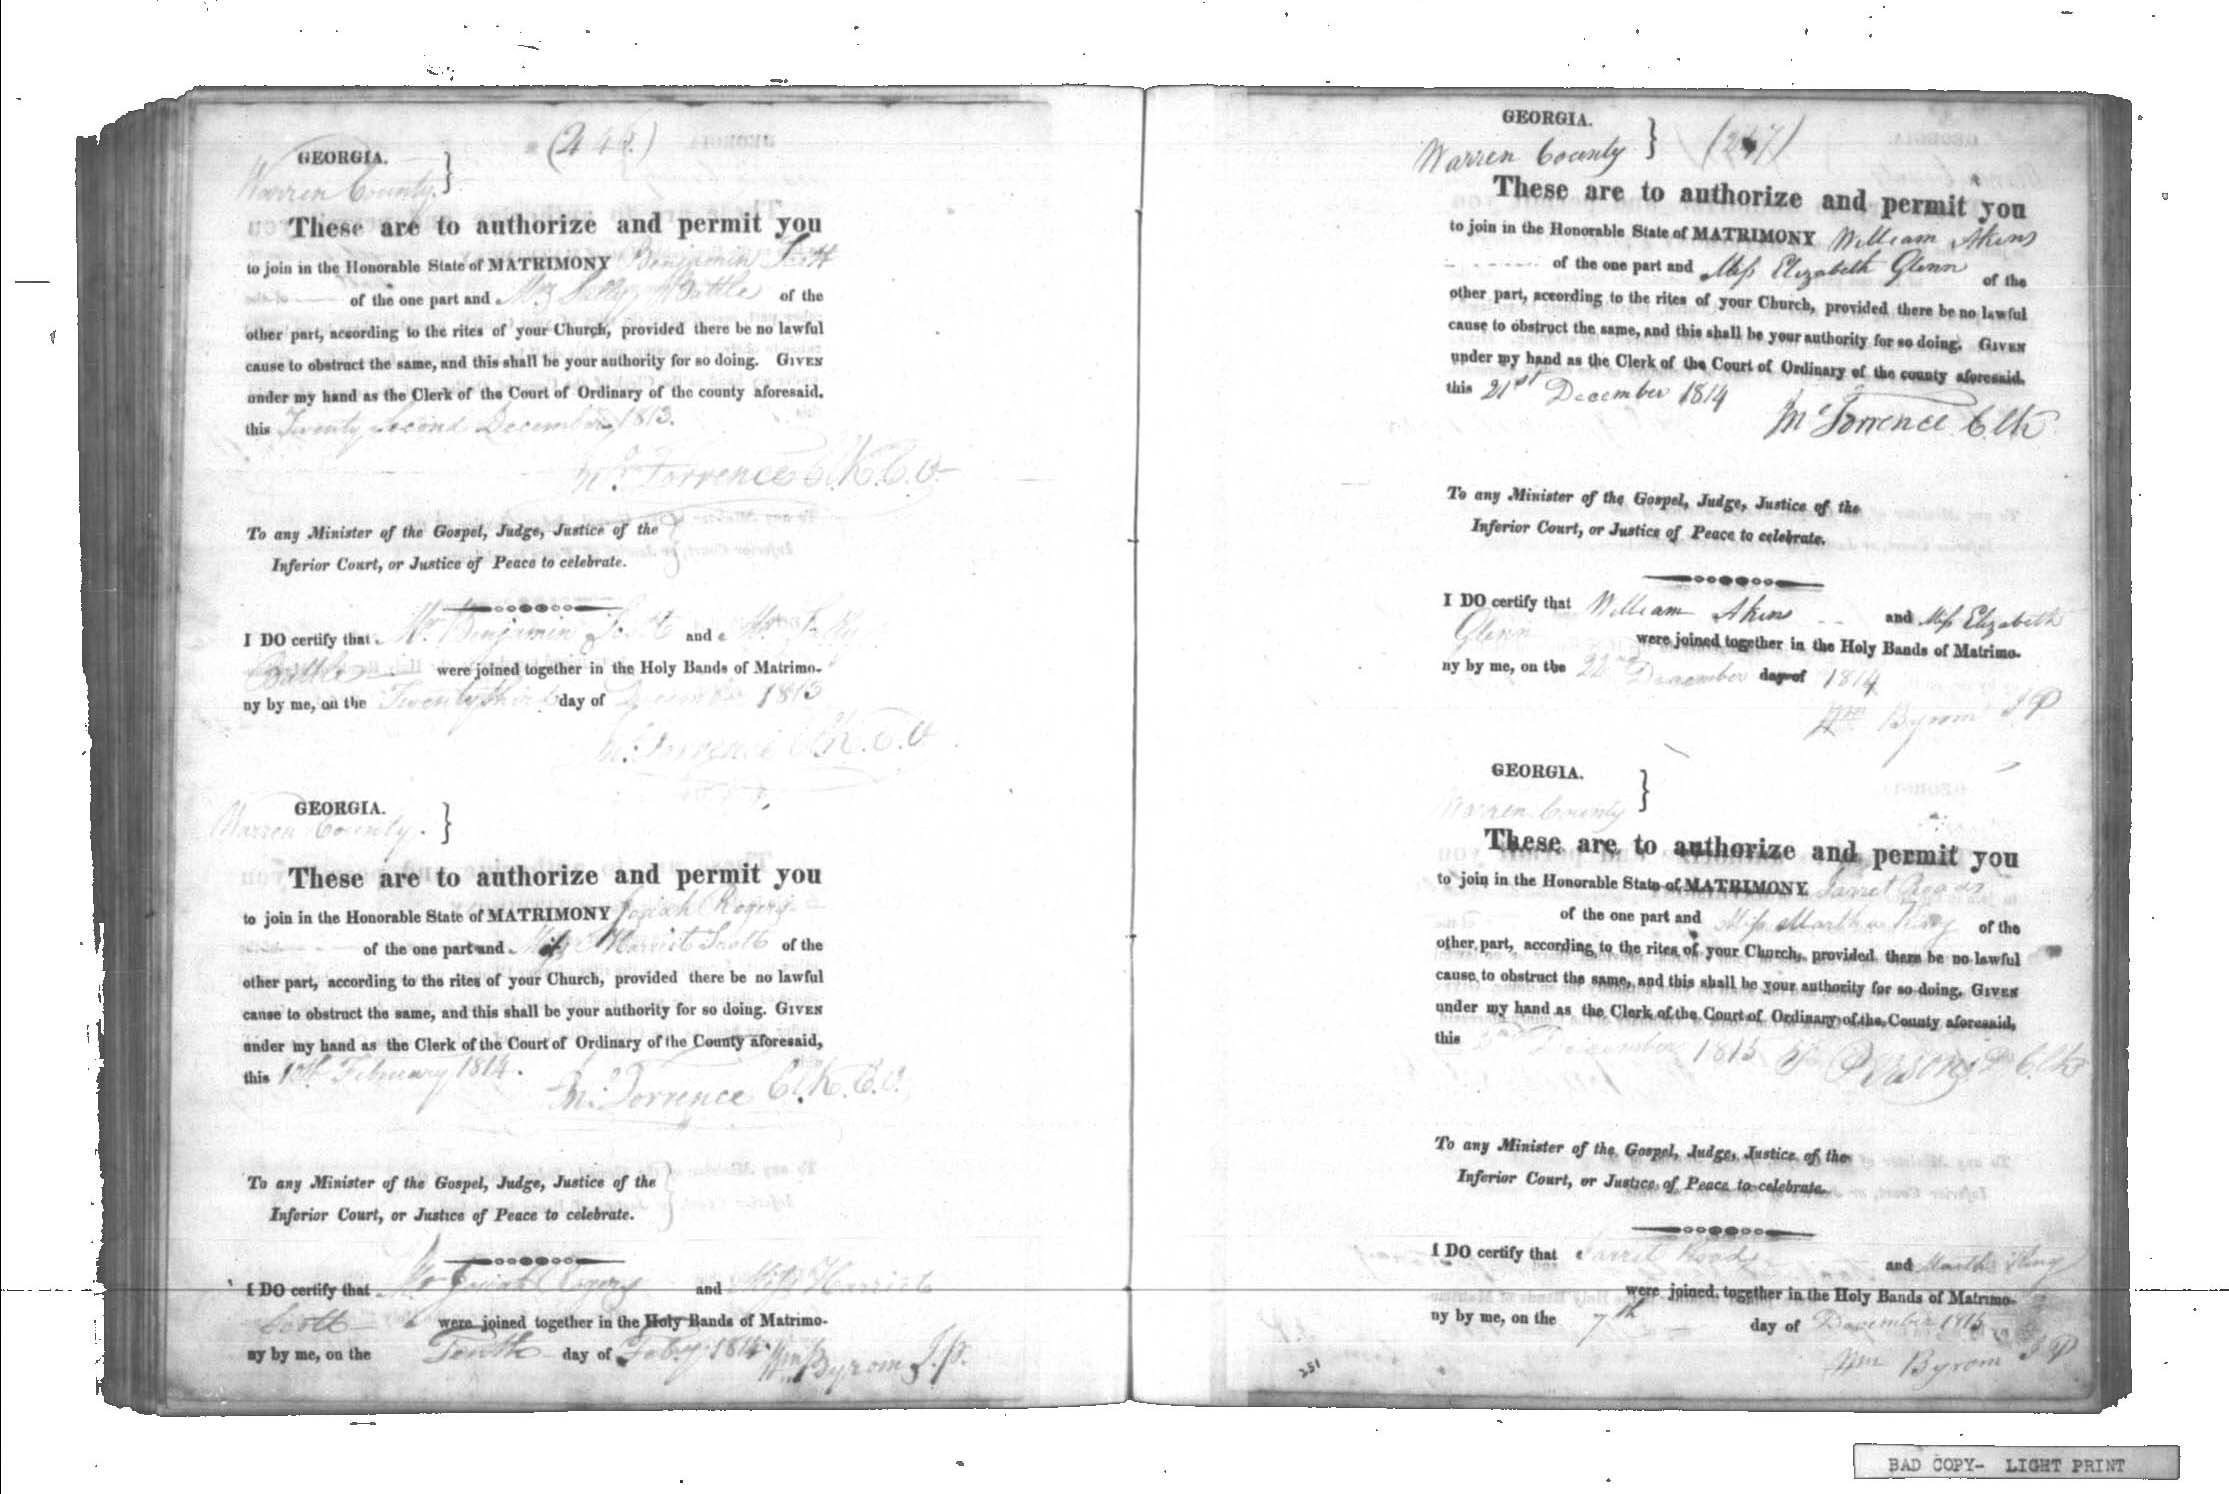 GEORGIA.
Warren County. }
These are to authorize and permit you
to join in the Honorable State of MATRIMONY Benjamin Scott
of the one part and Sally Battle of the
other part, according to the rites of your Church, provided there be no lawful
cause to obstruct the same, and this shall be your authority for so doing. GIVEN
under my hand as the Clerk of the Court of Ordinary of the county aforesaid.
this Twenty Second December 1813.
Torrence
To any Minister of the Gospel, Judge, Justice of the
Inferior Court, or Justice of Peace to celebrate.
I DO certify that Mr Benjamin Scott and Sally
Battle were joined together in the Holy Bands of Matrimo-
ny by me, on the Twenty third day of December 1813
Torrence
GEORGIA.
Warren County. }
These are to authorize and permit you
to join in the Honorable State of MATRIMONY Josiah Rogers
of the one part and Harriet Scott of the
other part, according to the rites of your Church, provided there be no lawful
cause to obstruct the same, and this shall be your authority for so doing. GIVEN
under my hand as the Clerk of the Court of Ordinary of the County aforesaid,
this 10th February 1814.
Torrence
To any Minister of the Gospel, Judge, Justice of the
Inferior Court, or Justice of Peace to celebrate.
I DO certify that Mr Josiah Rogers and Miss Harriet
Scott were joined together in the Holy Bands of Matrimo-
ny by me, on the Tenth day of Feby 1814. Wm Byrom J.P.
GEORGIA.
Warren County } (247)
These are to authorize and permit you
to join in the Honorable State of MATRIMONY William Akins
of the one part and Miss Elizabeth Glenn of the
other part, according to the rites of your Church, provided there be no lawful
cause to obstruct the same, and this shall be your authority for so doing. GIVEN
under my hand as the Clerk of the Court of Ordinary of the county aforesaid.
this 21st December 1814
Torrence Clk
To any Minister of the Gospel, Judge, Justice of the
Inferior Court, or Justice of Peace to celebrate.
I DO certify that William Akins and Miss Elizabeth
Glenn were joined together in the Holy Bands of Matrimo-
ny by me, on the 22nd December day of 1814
Wm Byrom J P
GEORGIA.
Warren County }
These are to authorize and permit you
to join in the Honorable State of MATRIMONY Jarret Roads
of the one part and Miss Martha King of the
other part, according to the rites of your Church, provided there be no lawful
cause to obstruct the same, and this shall be your authority for so doing. GIVEN
under my hand as the Clerk of the Court of Ordinary of the County aforesaid,
this 2nd December 1815
To any Minister of the Gospel, Judge, Justice of the
Inferior Court, or Justice of Peace to celebrate.
I DO certify that Jarret Roads and Martha King
were joined together in the Holy Bands of Matrimo-
ny by me, on the 7th day of December 1815
251
Wm Byrom J P
BAD COPY- LIGHT PRINT